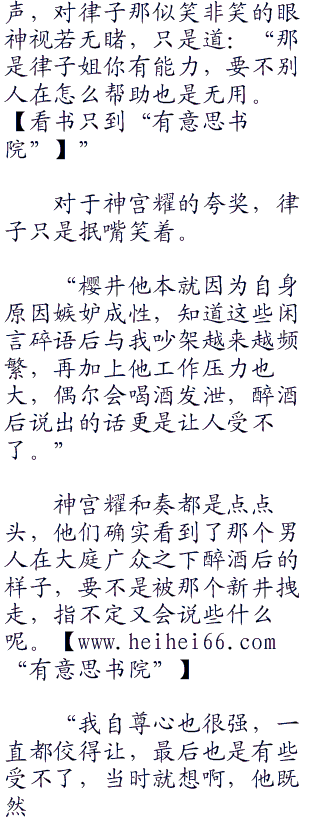 声，对律子那似笑非笑的眼
神视若无睹，只是道：“那
是律子姐你有能力，要不别
人在怎么帮助也是无用。
【看书只到“有意思书
院”】”
对于神宫耀的夸奖，律
子只是抿嘴笑着。
“樱井他本就因为自身
原因嫉妒成性，知道这些闲
言碎语后与我吵架越来越频
繁，再加上他工作压力也
大，偶尔会喝酒发泄，醉酒
后说出的话更是让人受不
了。”
神宫耀和奏都是点点
头，他们确实看到了那个男
人在大庭广众之下醉酒后的
样子，要不是被那个新井拽
走，指不定又会说些什么
呢。【www.heihei66.com
“有意思书院”】
“我自尊心也很强，一
直都佼得让，最后也是有些
受不了，当时就想啊，他既
然